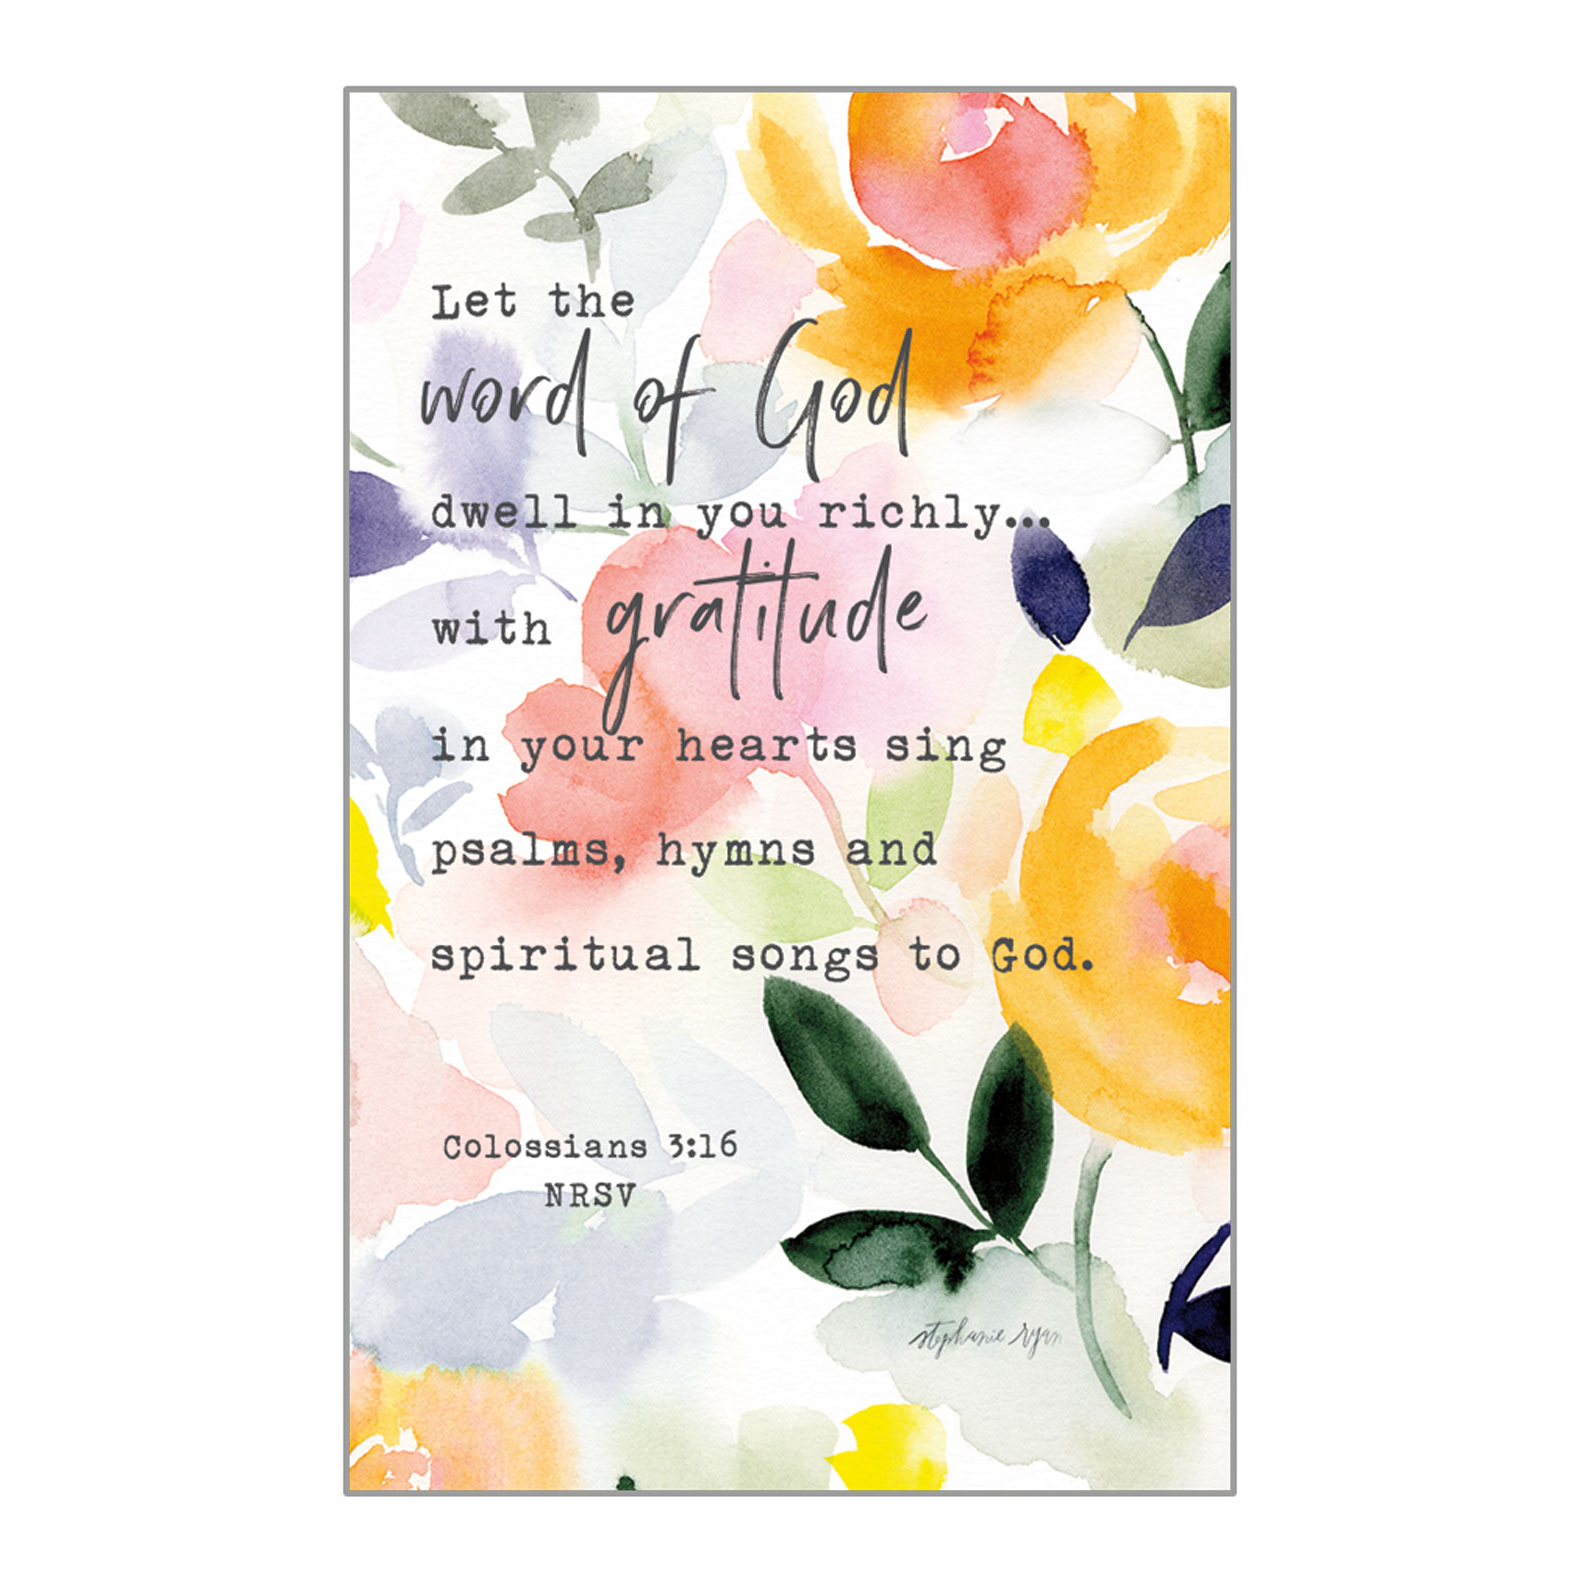 Let the
word of God
dwell in you richly...
with gratitude
in your hearts sing
psalms, hymns and
spiritual songs to God.
Colossians 3:16
NRSV
stephanie ryan